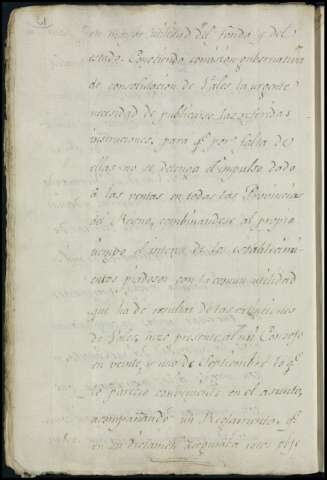 en mayor utilidad del fondo y del
estado. Conociendo, comision gubernativa
de consolidacion de Vales la urgente
necesidad de publicarse las referidas
instrucciones, para q.e por falta de
ellas no se detenga el impulso dado
à las ventas en todas las Provincias
del Reyno, combinandose al propio
tiempo el interes de los establecimi-
entos piadosos con la comun utilidad
que ha de resultar de las extinciones
de Vales, hizo presente al mi Consejo
en veinte y uno de Septiembre lo q.e
le parecio conveniente en el asunto,
acompañando un Reglamento q.e
en su dictamen